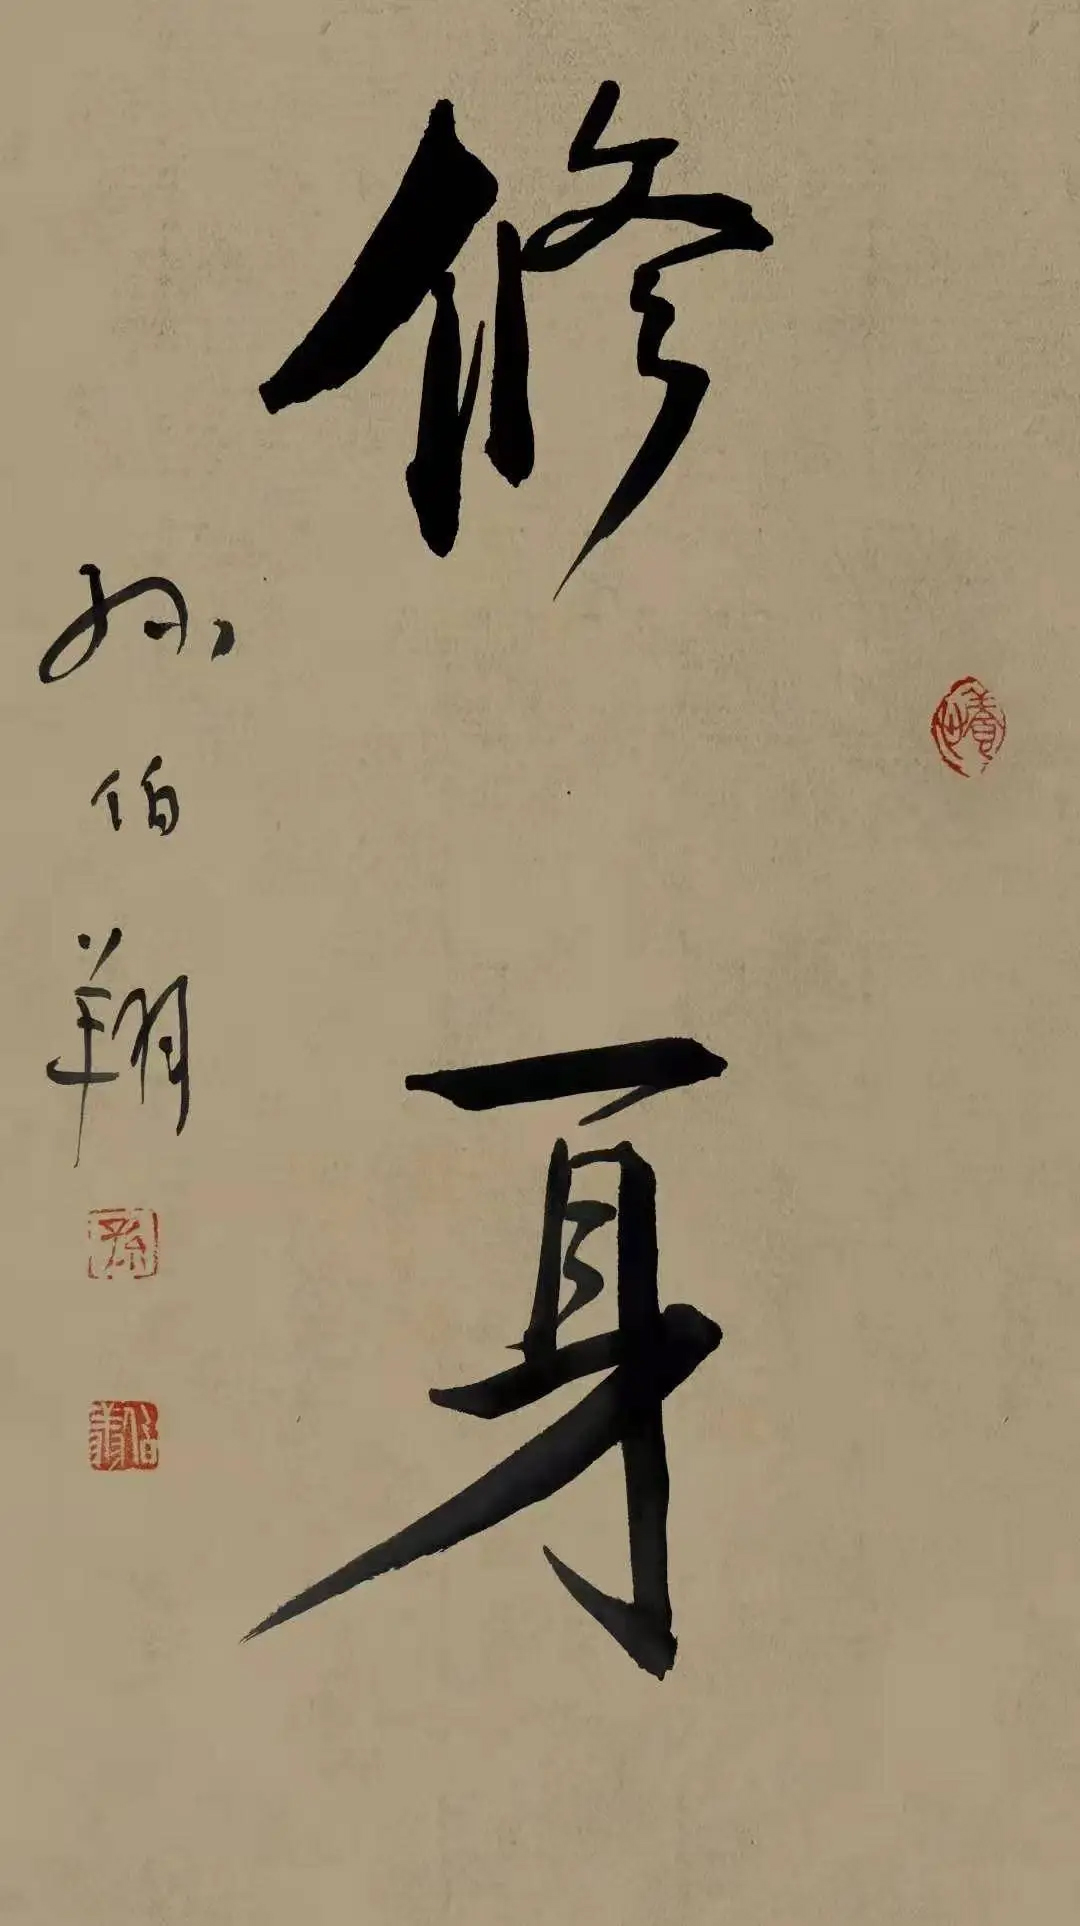 修身
孙伯翔
孫
伯翔